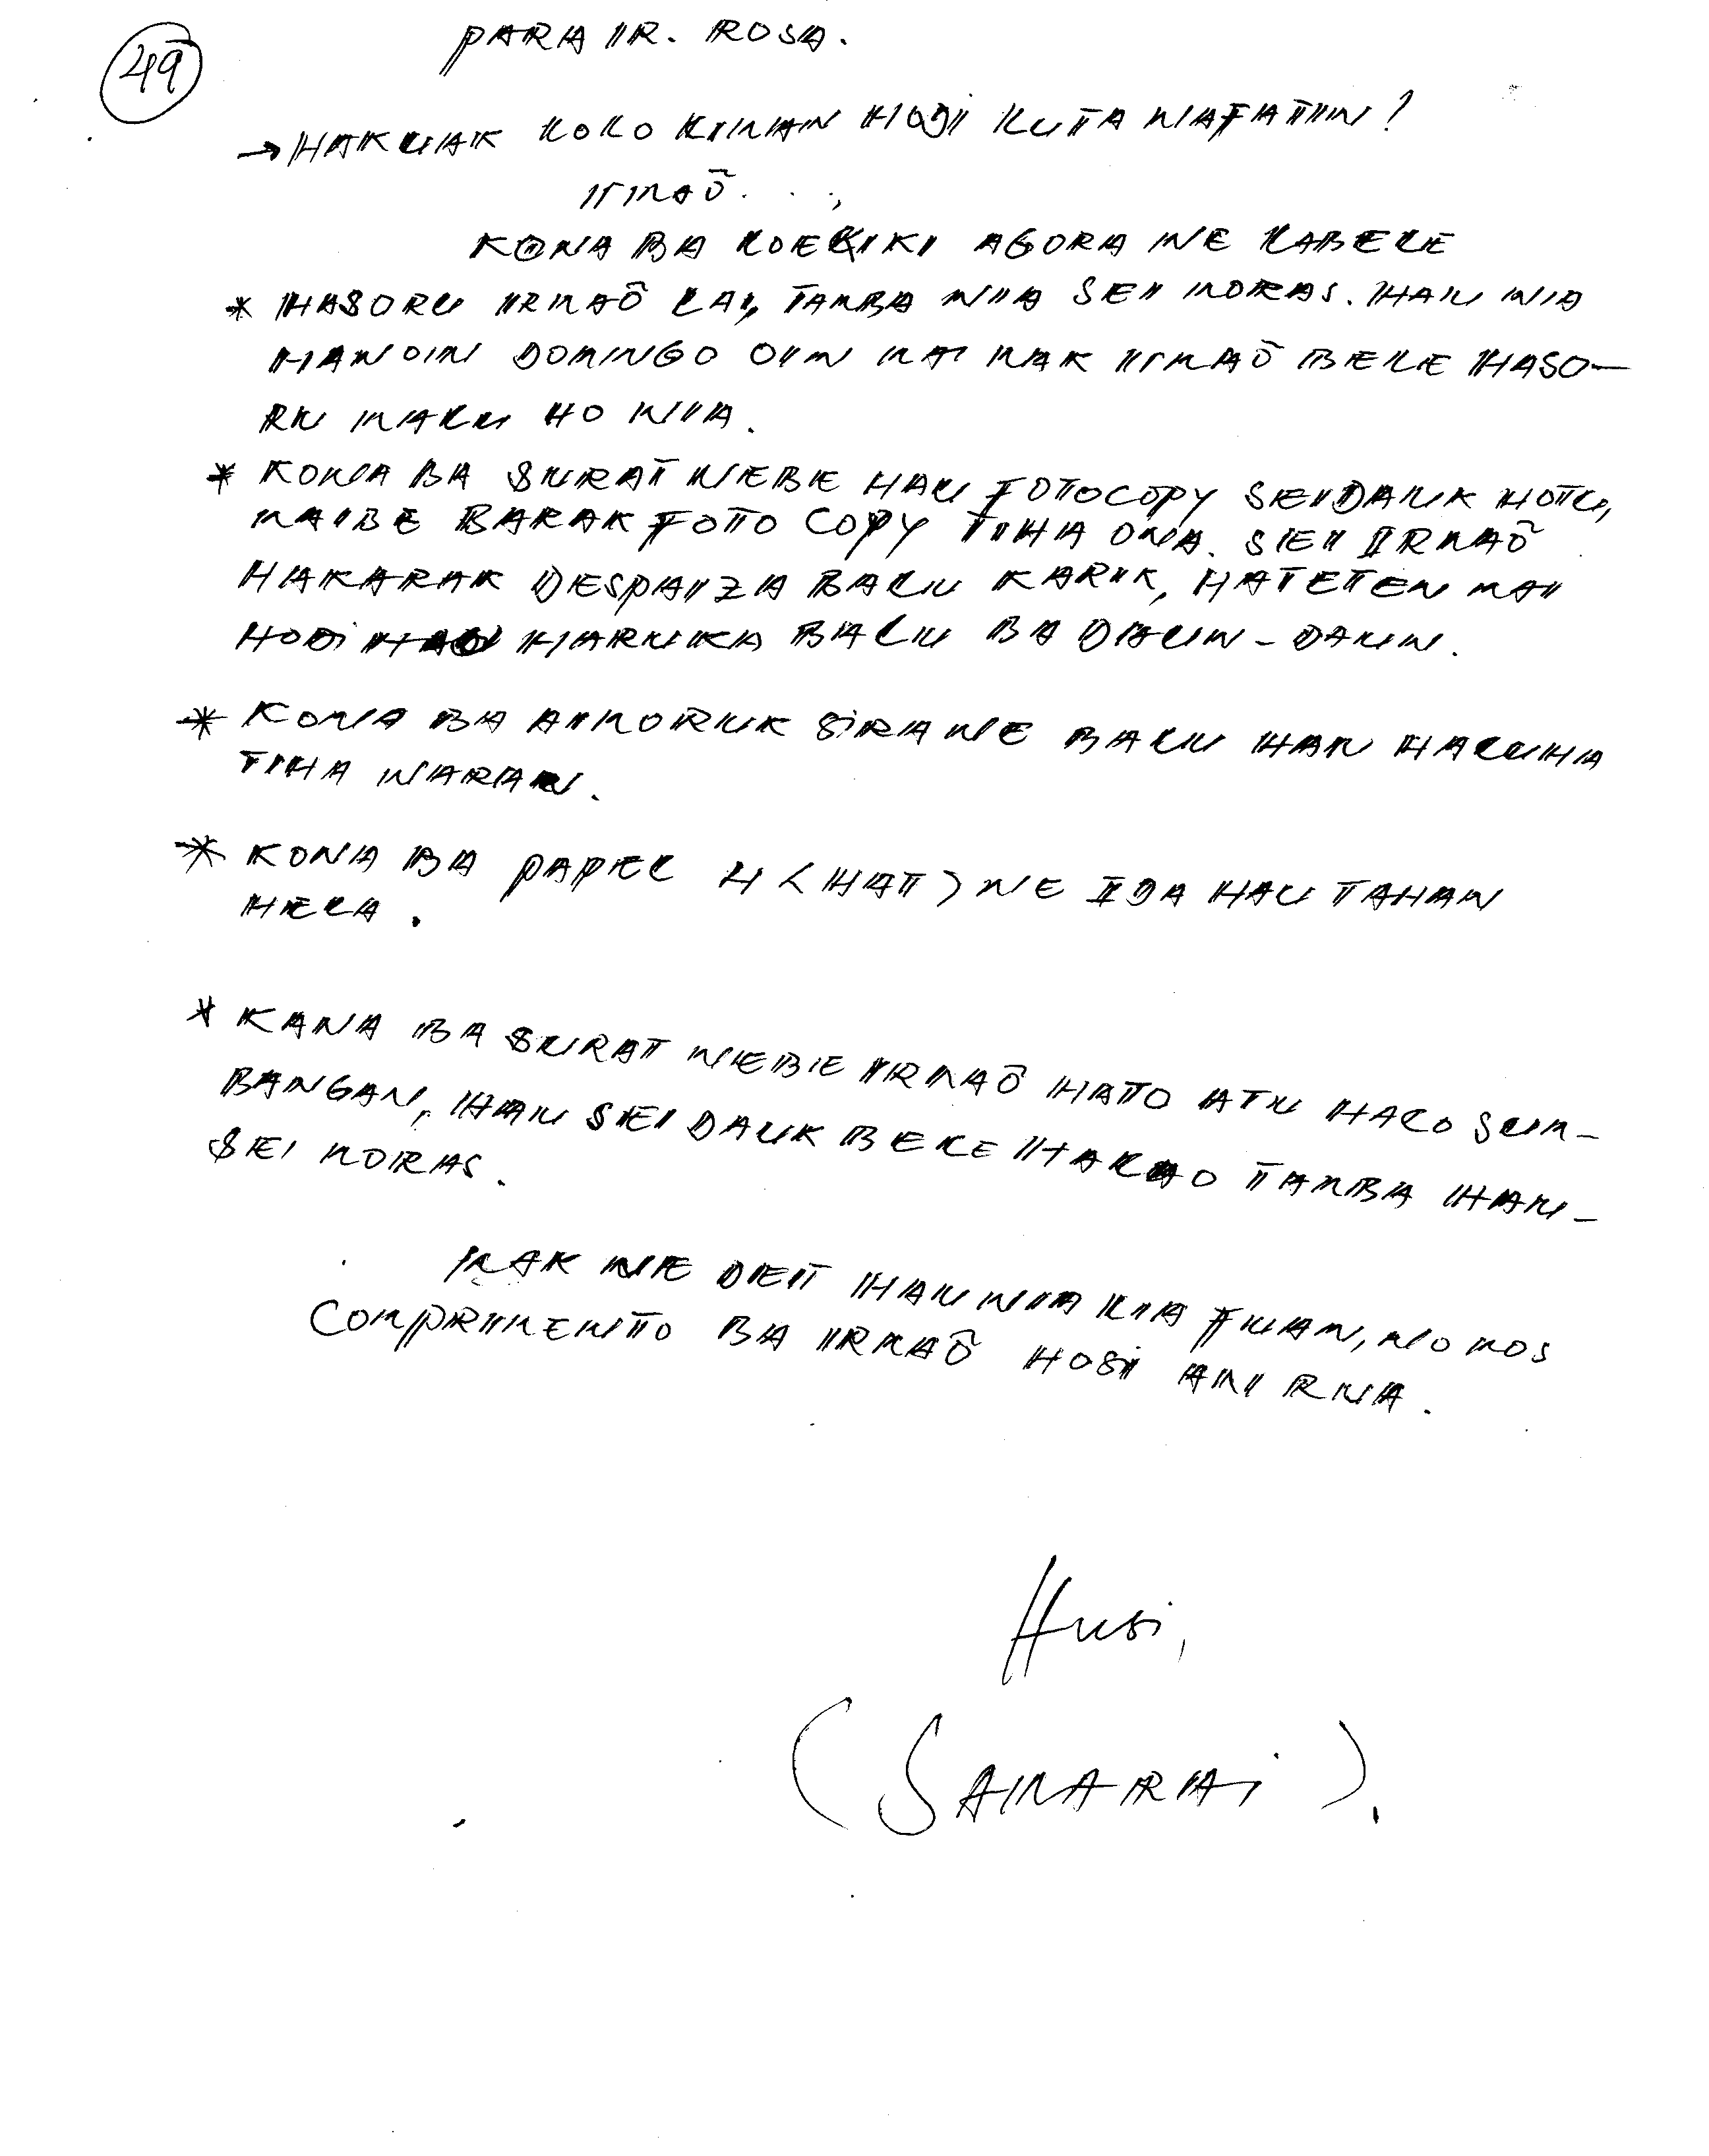 49
PARA IR. ROSA.
→ HAKUAK LOLO LIMAN HODI LUTA NAFATIN!
IRMAÕ. . .,
KONA BA LOEKIKI AGORA NE LABELE
* HASORU IRMAÕ LAI, TAMBA NIA SEI MORAS. HAU NIA
HANOIN DOMINGO OIN MAI MAK IRMAÕ BELE HASO-
RU MALU HO NIA.
* KONA BA SURAT NEBE HAU FOTOCOPY SEIDAUK HOTU,
MAIBE BARAK FOTO COPY TIHA ONA. SEI IRMAÕ
HAKARAK DESPAIZA BALU KARIK, HATETEN MAI
HODI HARUKA BALU BA DAUN-DAUN.
* KONA BA AIMORUK SIRA NE BALU HAU HALUHA
TIHA NARAN.
* KONA BA PAPEL 4 <HAT> NE IDA HAU TAHAN
HELA.
* KANA BA SURAT NEBE IRMAÕ HATO ATU HALO SUM-
BANGAN, HAU SEIDAUK BELE HALAO TAMBA HAU-
SEI MORAS.
MAK NE DEIT HAU NIA LIA FUAN, NO MOS
COMPRIMENTO BA IRMAÕ HOSI AMI RUA.
Husi,
(SAMARAI).